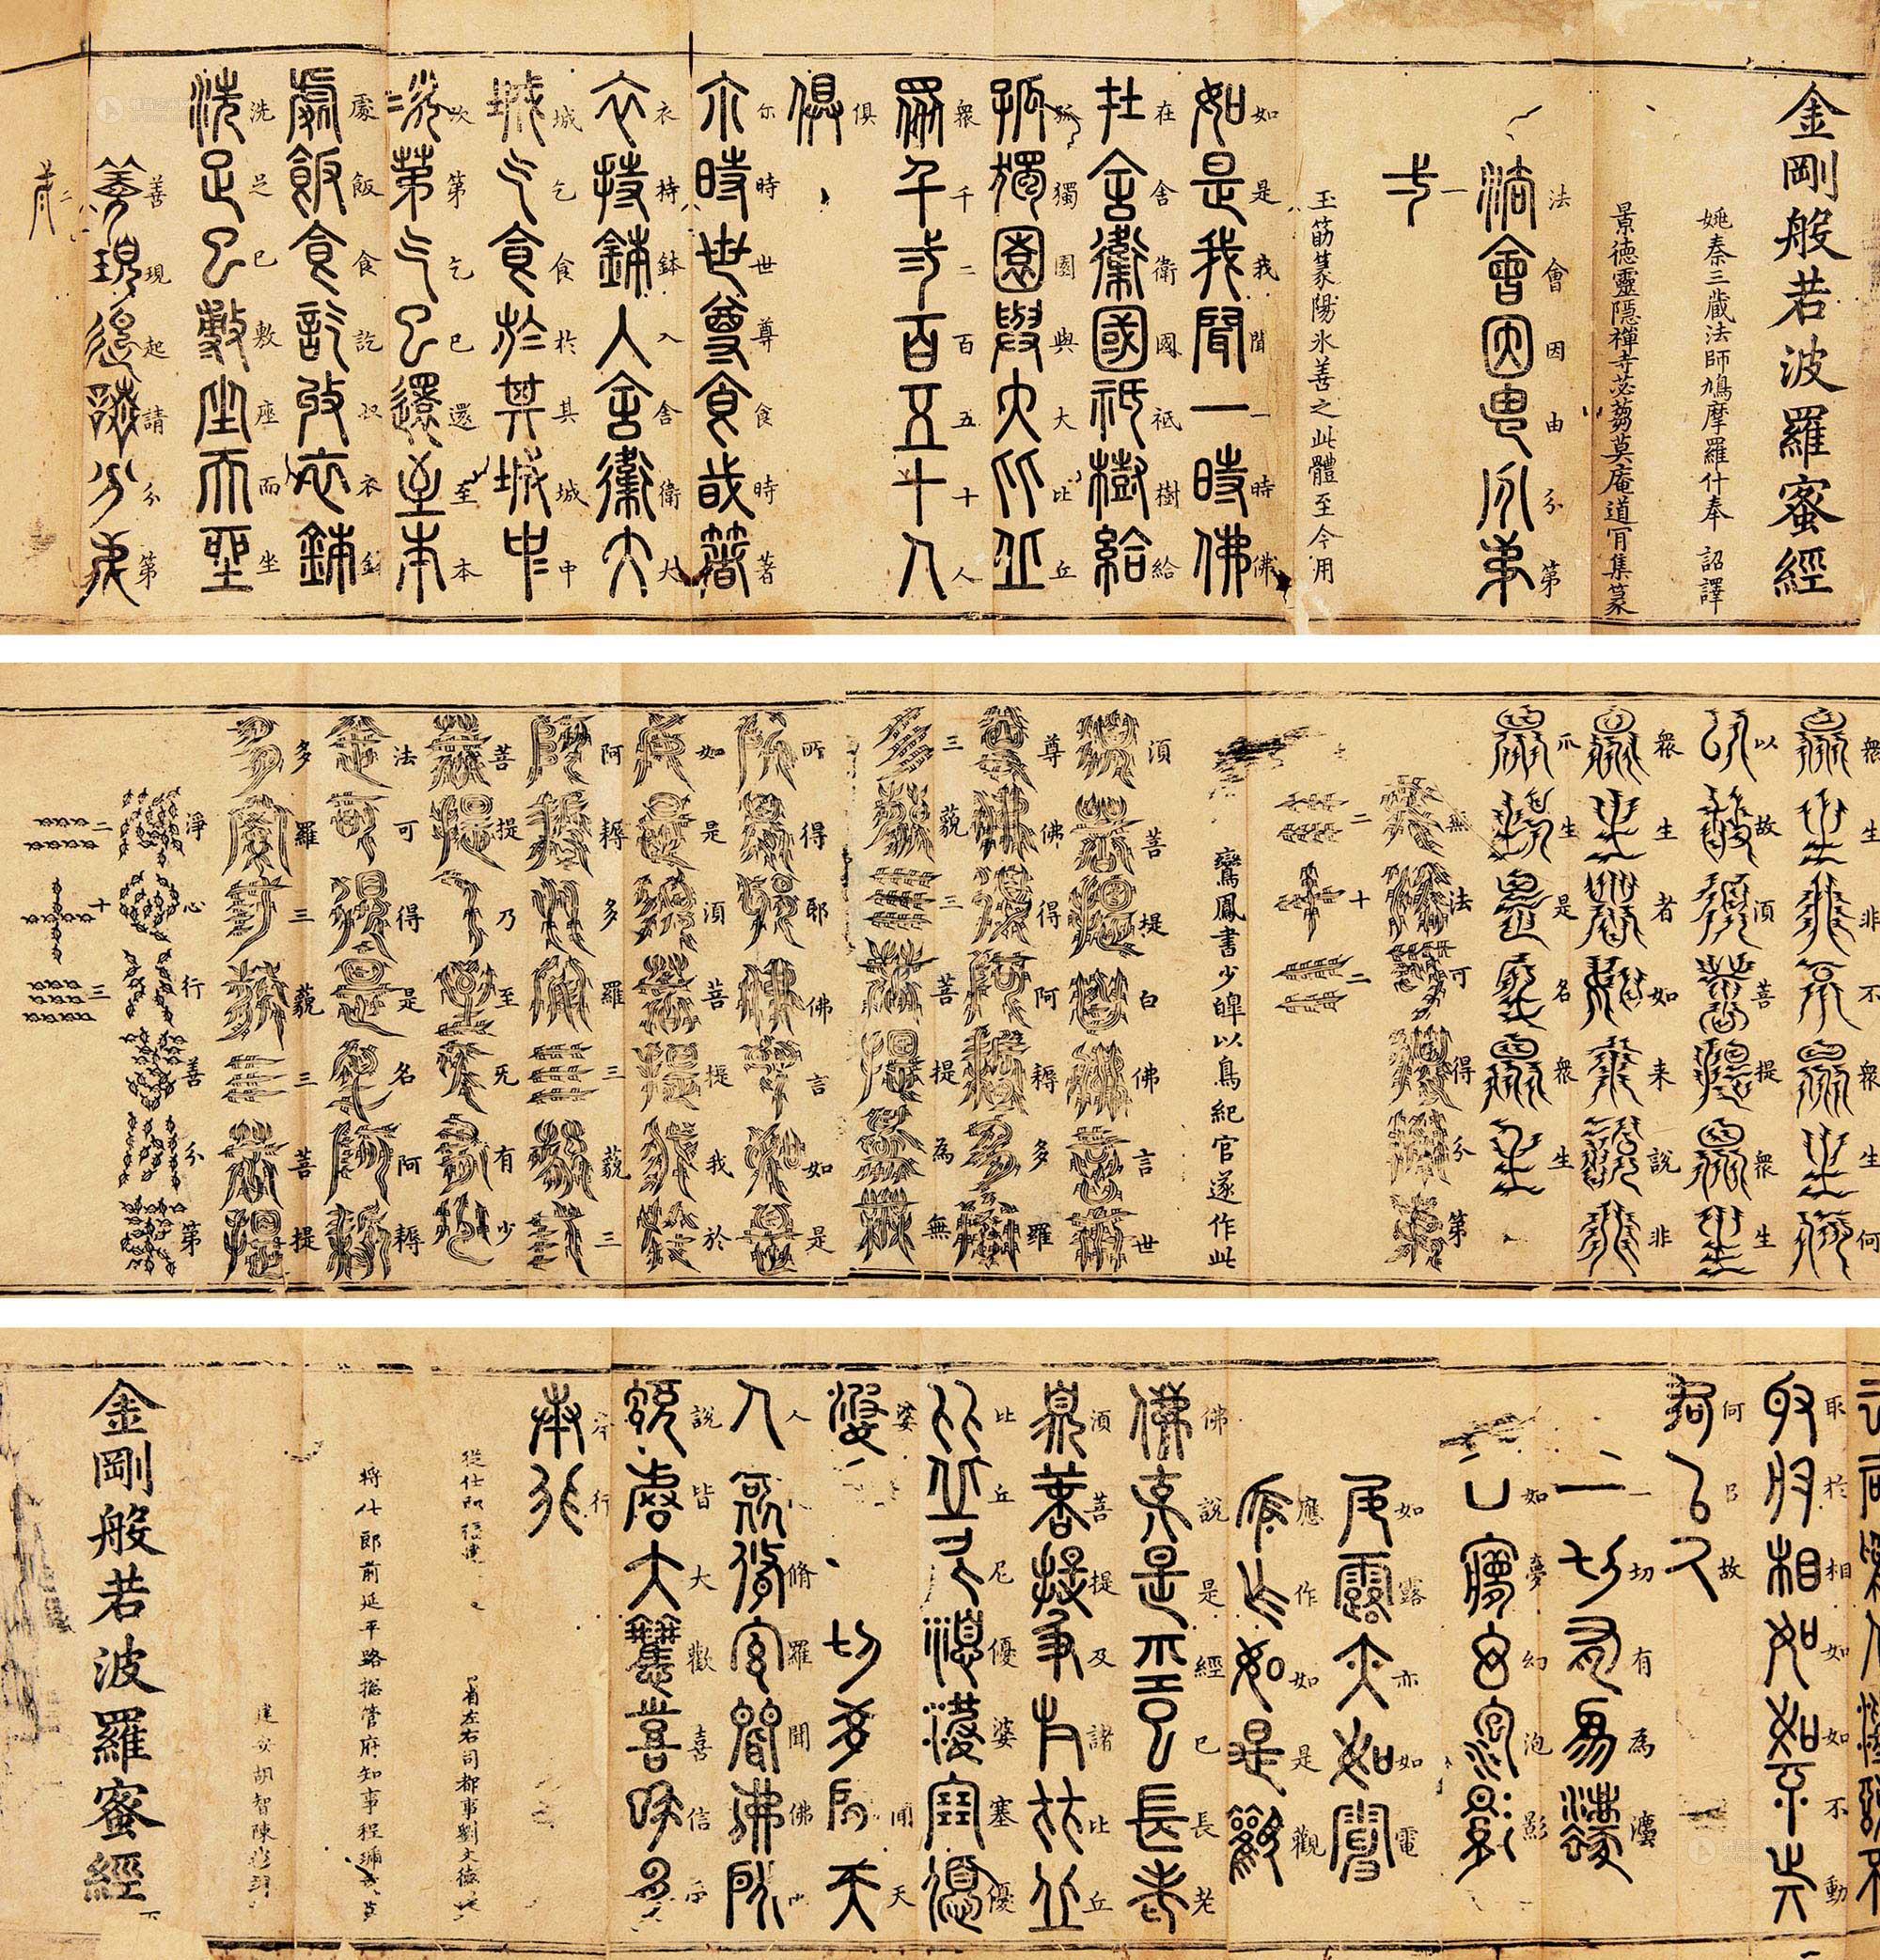 金剛般若波羅蜜經
姚秦三藏法師鳩摩羅什奉 詔譯
景德靈隱禪寺苾芻莫庵道肎集篆
法會因由分第
一
玉筯篆陽氷善之此體至今用
如是我聞一時佛
在舍衛國祇樹給
孤獨園與大比丘
衆千二百五十人
俱
尓時世尊食時著
衣持鉢入舍衛大
城乞食於其城中
次第乞已還至本
處飯食訖収衣鉢
洗足已敷座而坐
善現起請分第
二
衆生非不衆生何
以故須菩提衆生
衆生者如来說非
衆生是名衆生
無法可得分第
二十二
鸞鳳書少皥以鳥紀官遂作此
須菩提白佛言世
尊佛得阿耨多羅
三藐三菩提為無
所得耶佛言如是
如是須菩提我於
阿耨多羅三藐三
菩提乃至旡有少
法可得是名阿耨
多羅三藐三菩提
淨心行善分第
二十三
取於相如如不動
何㠯故
一切有為灋
如夢幻泡影
如露亦如電
應作如是觀
佛說是經已長老
須菩提及諸比丘
比丘尼優婆塞優
婆 切 間天
人 脩羅聞佛所
說皆大歡喜信受
奉行
從仕郎 省左右司都事劉文德
將仕郎前延平路捴管府知事程
建安胡智陳
金剛般若波羅蜜經下